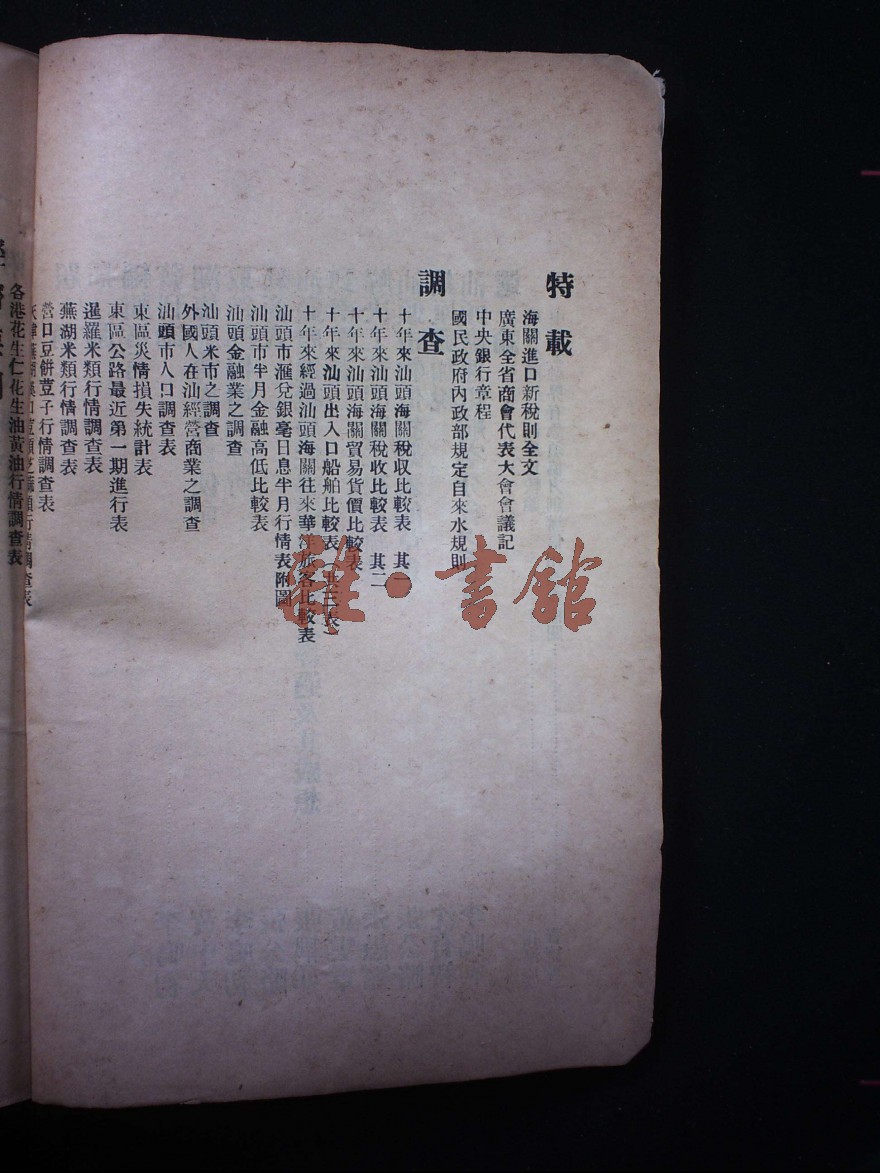 特載
海關進口新稅則全文
廣東全省商會代表大會會議記
中央銀行章程
國民政府內政部規定自來水規則
調查
十年來汕頭海關稅收比較表 其一
十年來汕頭海關稅收比較表 其二
十年來汕頭海關貿易貨價比較表
十年來汕頭出入口船舶比較表
十年來經過汕頭海關往來華洋旅客比較表
汕頭市滙兌銀毫日息半月行情表附圖
汕頭市半月金融高低比較表
汕頭金融業之調查
汕頭米市之調查
外國人在汕經營商業之調查
汕頭市人口調查表
東區災情損失統計表
東區公路最近第一期進行表
暹羅米類行情調查表
蕪湖米類行情調查表
營口豆餅荳子行情調查表
行情調查表
各港花生仁花生油黃油行情調查表
雅·書館